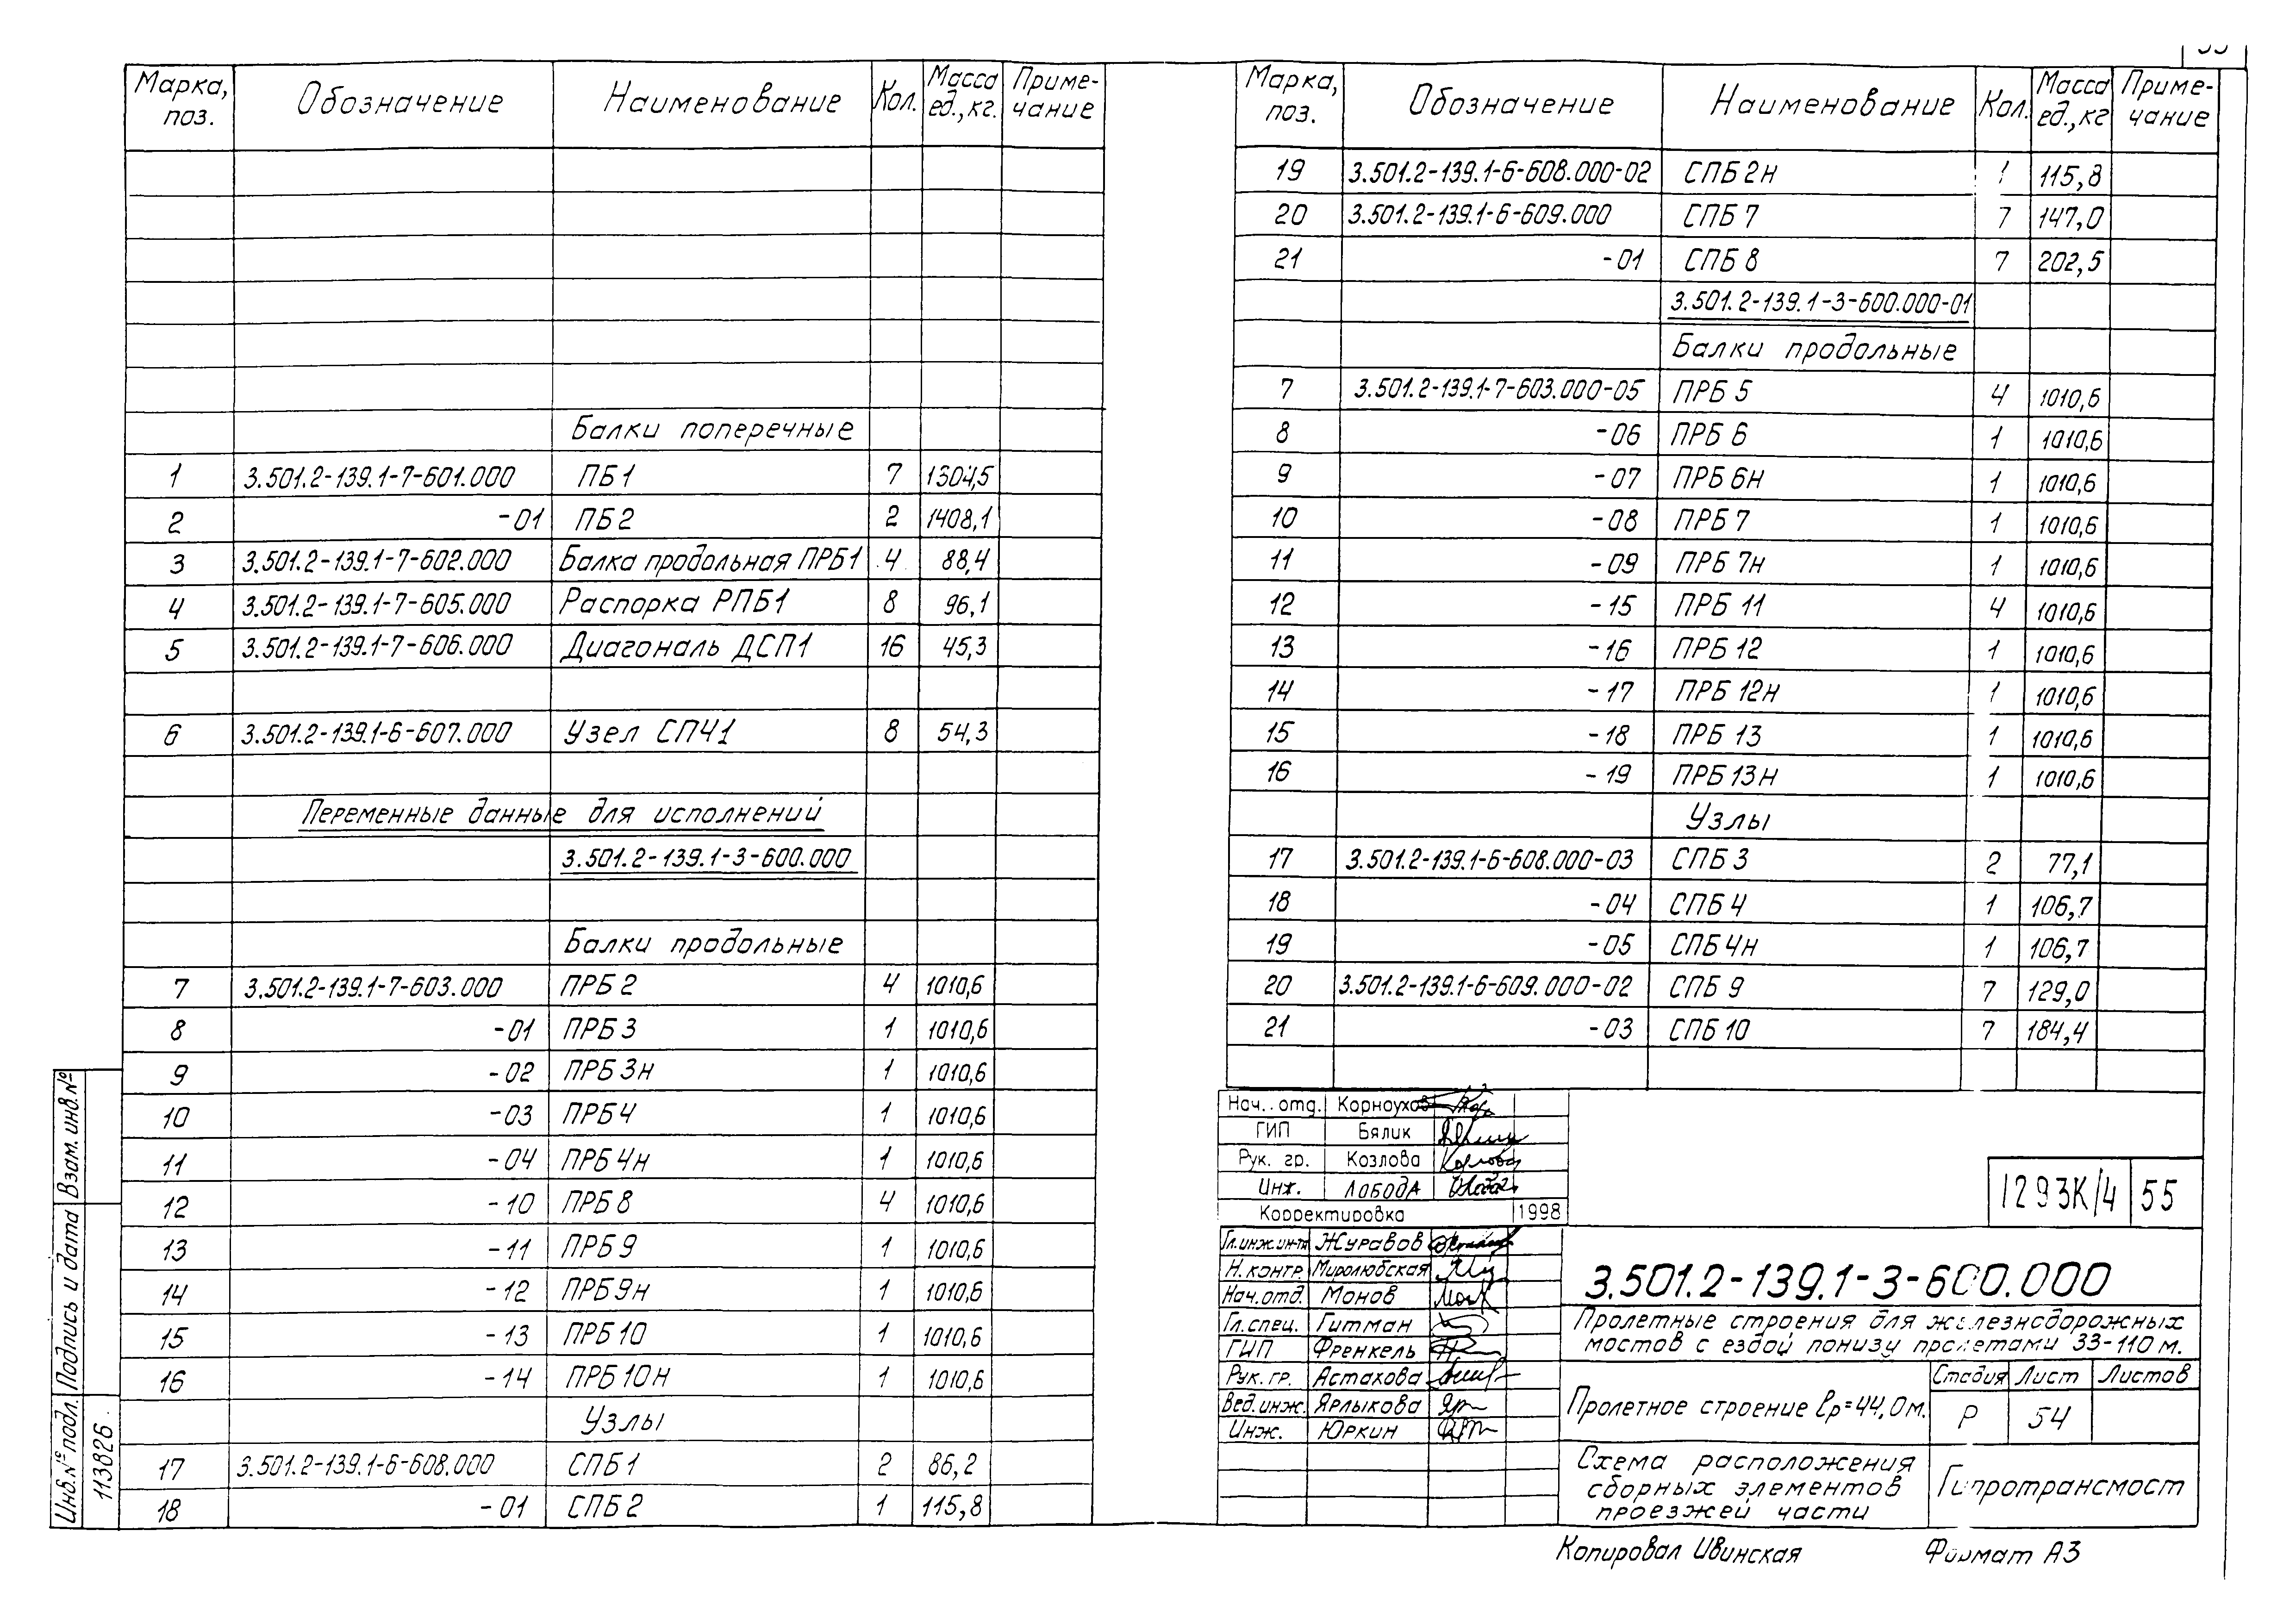 Марка, поз. Обозначение Наименование Кол. Масса ед., кг. Приме-чание
Балки поперечные
1 3.501.2-139.1-7-601.000 ПБ1 7 1304,5
2 -01 ПБ2 2 1408,1
3 3.501.2-139.1-7-602.000 Балка продольная ПРБ1 4 88,4
4 3.501.2-139.1-7-605.000 Распорка РПБ1 8 96,1
5 3.501.2-139.1-7-606.000 Диагональ ДСП1 16 45,3
6 3.501.2-139.1-6-607.000 Узел СПЧ1 8 54,3
Переменные данные для исполнений
3.501.2-139.1-3-600.000
Балки продольные
7 3.501.2-139.1-7-603.000 ПРБ 2 4 1010,6
8 -01 ПРБ 3 1 1010,6
9 -02 ПРБ 3н 1 1010,6
10 -03 ПРБ 4 1 1010,6
11 -04 ПРБ 4н 1 1010,6
12 -10 ПРБ 8 4 1010,6
13 -11 ПРБ 9 1 1010,6
14 -12 ПРБ 9н 1 1010,6
15 -13 ПРБ 10 1 1010,6
16 -14 ПРБ 10н 1 1010,6
Узлы
17 3.501.2-139.1-6-608.000 СПБ1 2 86,2
18 -01 СПБ 2 1 115,8
Марка, поз. Обозначение Наименование Кол. Масса ед., кг Приме-чание
19 3.501.2-139.1-6-608.000-02 СПБ 2н 1 115,8
20 3.501.2-139.1-6-609.000 СПБ 7 7 147,0
21 -01 СПБ 8 7 202,5
3.501.2-139.1-3-600.000-01
Балки продольные
7 3.501.2-139.1-7-603.000-05 ПРБ 5 4 1010,6
8 -06 ПРБ 6 1 1010,6
9 -07 ПРБ 6н 1 1010,6
10 -08 ПРБ 7 1 1010,6
11 -09 ПРБ 7н 1 1010,6
12 -15 ПРБ 11 4 1010,6
13 -16 ПРБ 12 1 1010,6
14 -17 ПРБ 12н 1 1010,6
15 -18 ПРБ 13 1 1010,6
16 -19 ПРБ 13н 1 1010,6
Узлы
17 3.501.2-139.1-6-608.000-03 СПБ 3 2 77,1
18 -04 СПБ 4 1 106,7
19 -05 СПБ 4н 1 106,7
20 3.501.2-139.1-6-609.000-02 СПБ 9 7 129,0
21 -03 СПБ 10 7 184,4
Нач. отд. Корноухов
ГИП Бялик
Рук. гр. Козлова
Инж. Лобода
Корректировка 1998
1293К/4 55
Гл.инж.ин-та Журавов
Н.контр. Миролюбская
Нач.отд. Монов
Гл.спец. Гитман
ГИП Френкель
Рук. гр. Астахова
Вед.инж. Ярлыкова
Инж. Юркин
3.501.2-139.1-3-600.000
Пролетные строения для железнодорожных
мостов с ездой понизу пролетами 33-110 м.
Пролетное строение lр=44,0м.
Стадия Лист Листов
Р 54
Схема расположения
сборных элементов
проезжей части
Гипротрансмост
Копировал Ивинская Формат А3
Взам. инв. №
Подпись и дата
Инв. № подл.
113826